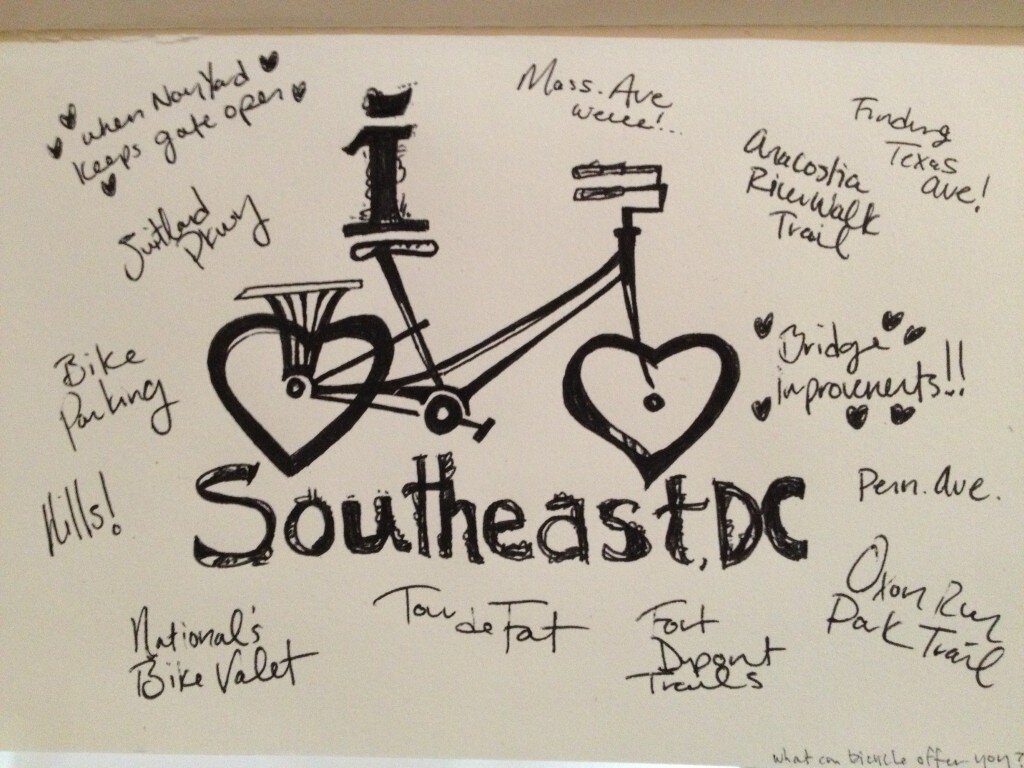 when Navy Yard
keeps gate open
Mass. Ave
weeee!...
Finding
Texas
Ave!
Anacostia
RiverWalk
Trail
Suitland
Pkwy
i
Bridge
improvements!!
Bike
Parking
Hills!
Southeast, DC
Penn. Ave.
Oxon Run
Park Trail
National's
Bike Valet
Tour
de Fat
Fort
Dupont
Trails
what can bicycle offer you?